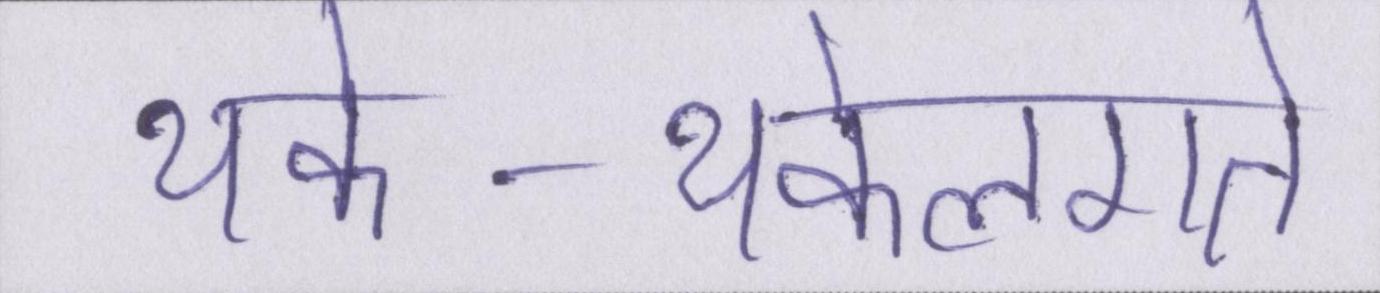 थके-थकेलगते